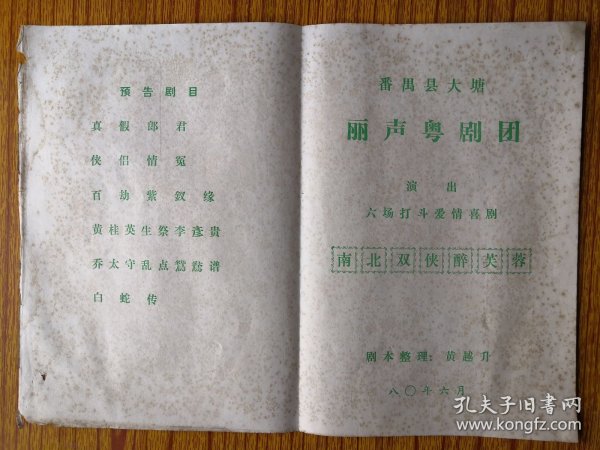 预告剧目
真假郎君
侠侣情冤
百劫紫钗缘
黄桂英生祭李彦贵
乔太守乱点鸳鸯谱
白蛇传
番禺县大塘
丽声粤剧团
演出
六场打斗爱情喜剧
南北双侠醉芙蓉
剧本整理：黄越升
八〇年六月
孔夫子旧书网
www.kongfz.com